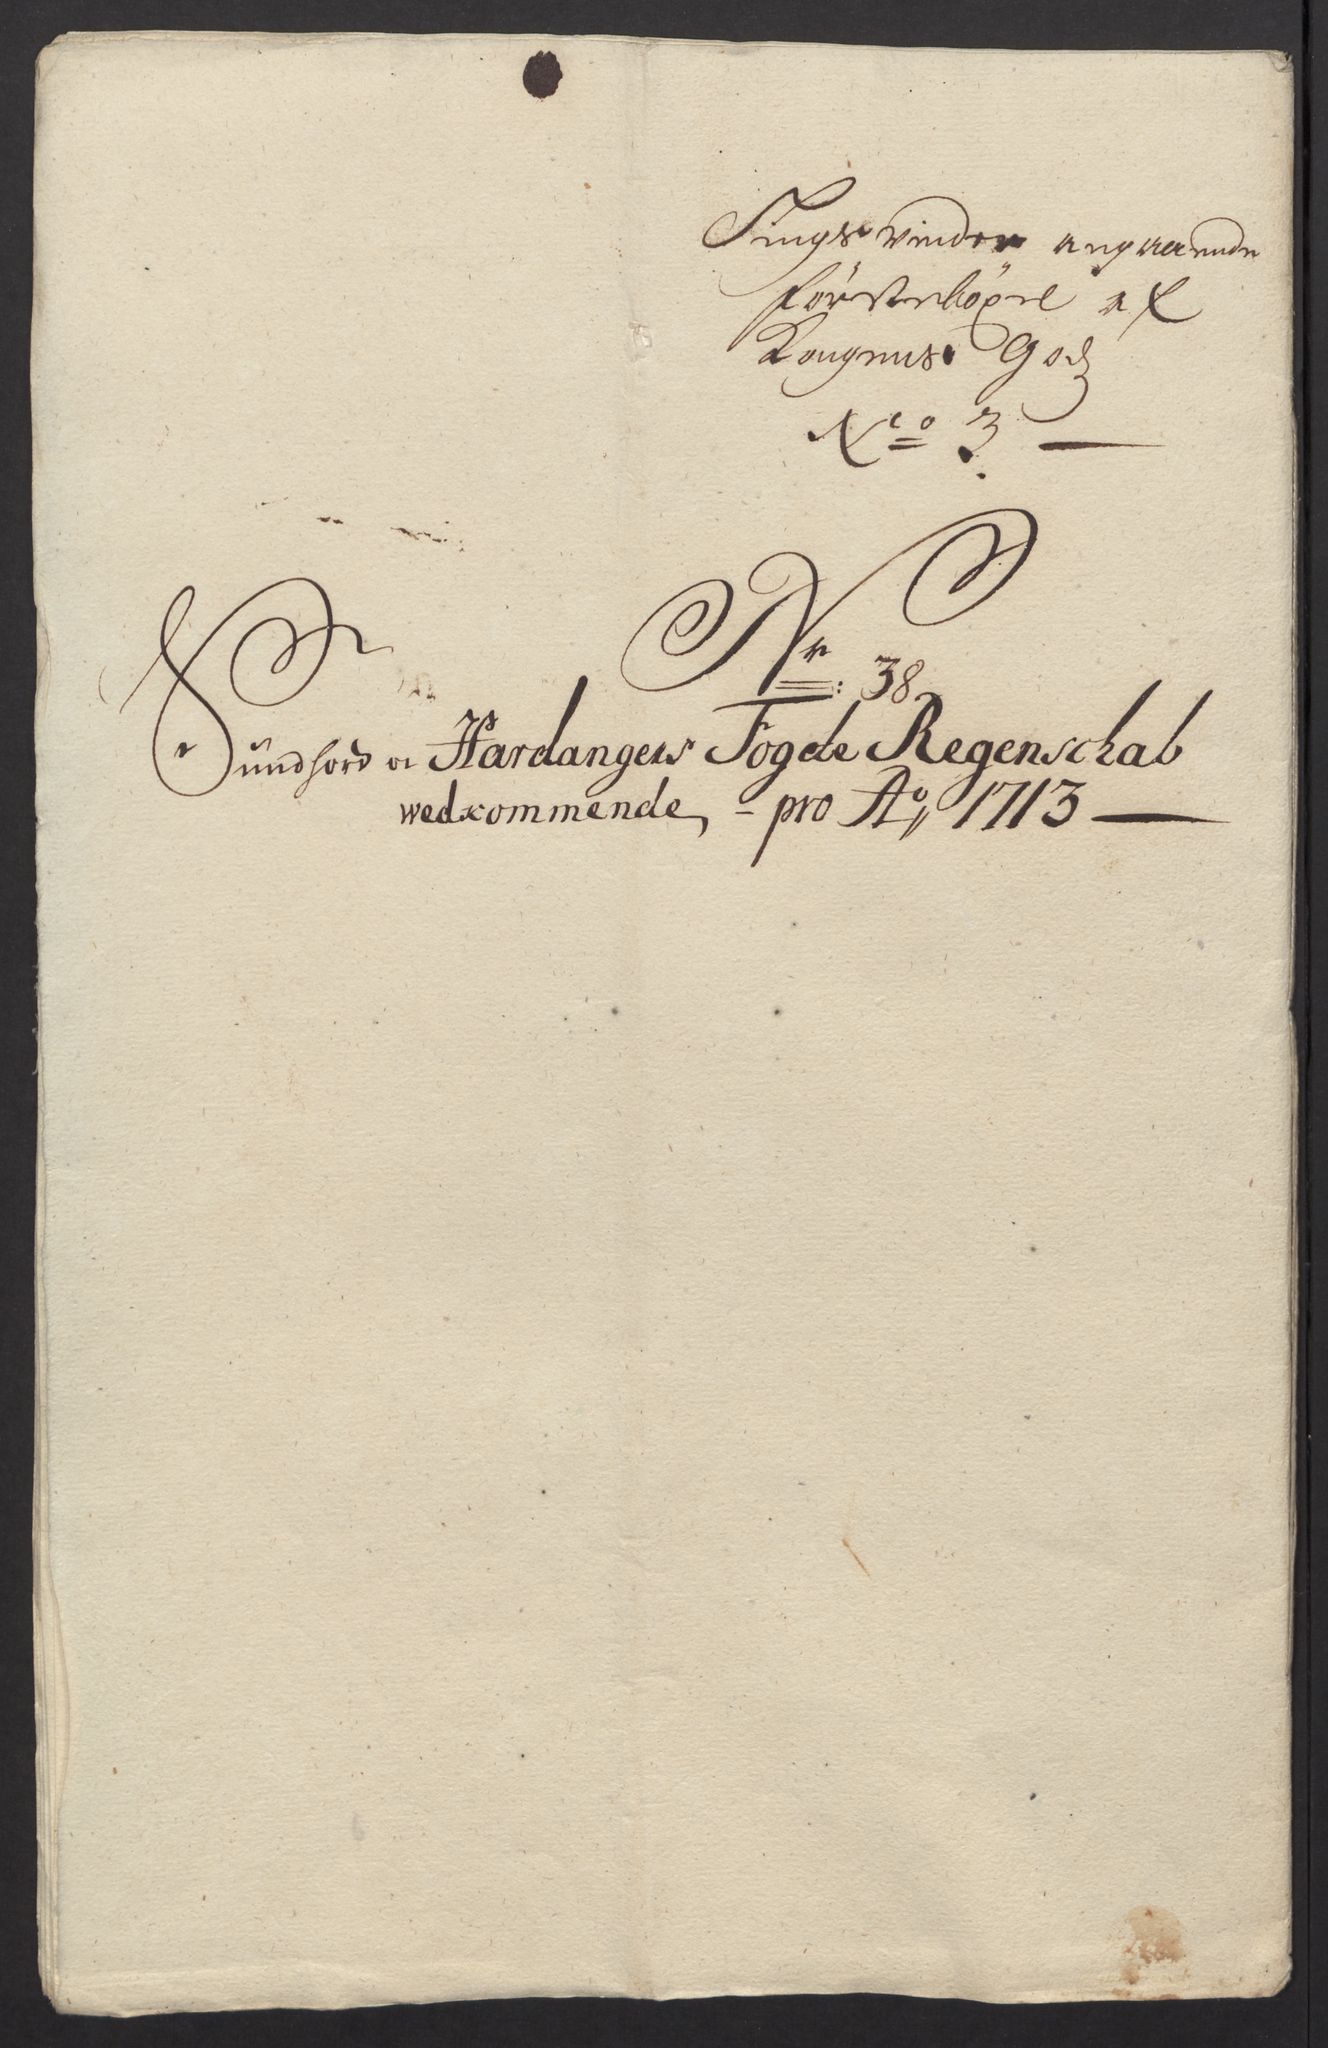 Tingsvinder angaaende
försteböxel af
Kongens Godz
No 3
Nr: 38
Sündhord oc Hardangers Fogde Regenschab
wedkommende, - pro Ao, 1713